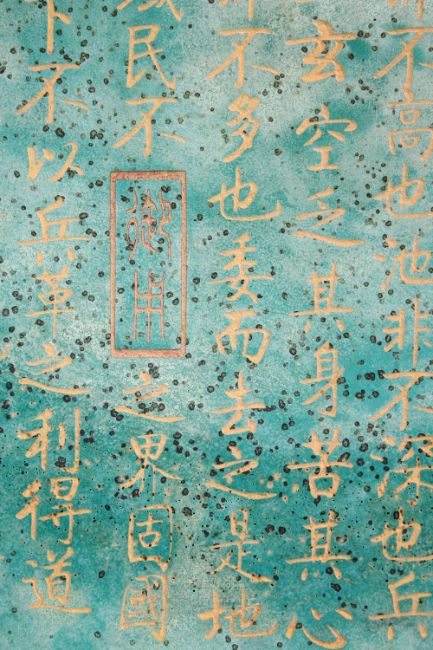 不高也池非不深也兵
玄空乏其身苦其心
不多也委而去之是地
民不
御用
之界固國
下不以兵革之利得道